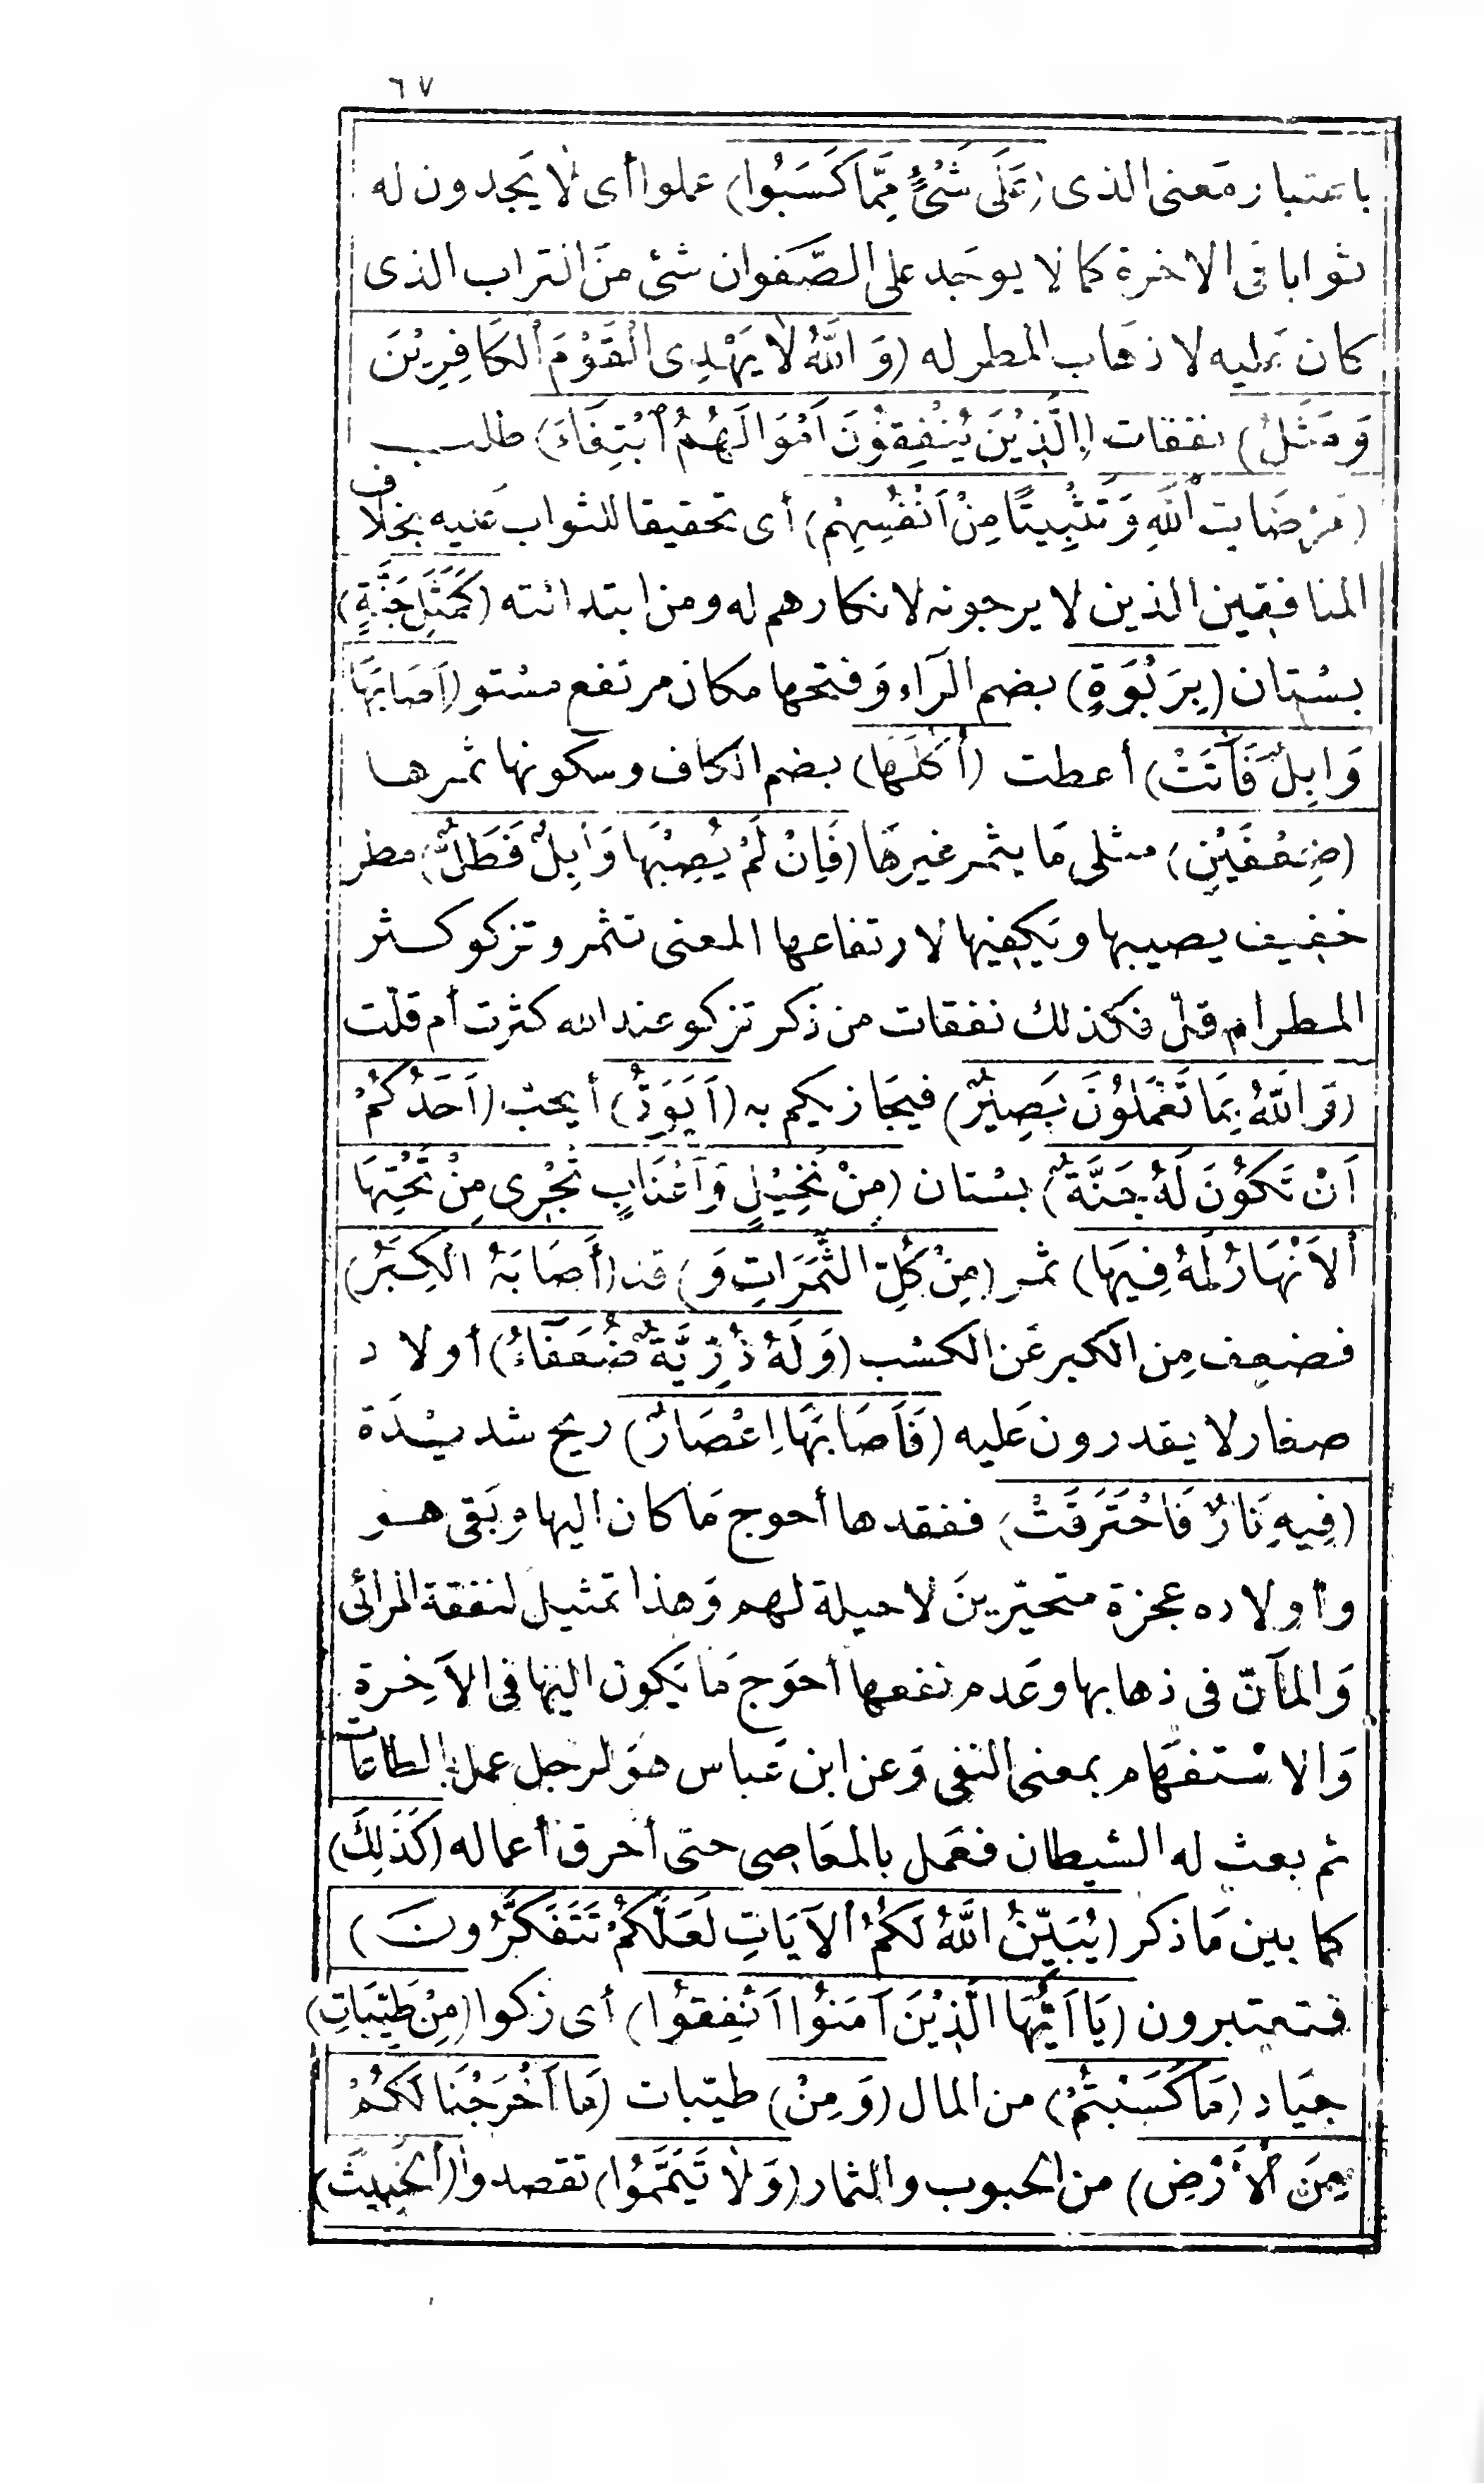 ٦٧
باعتبار مَعنى الذى (عَلَى شَىْءٍ مِمَّا كَسَبُوا) عملوا أى لا يَجدون له
ثوابا فى الاخرة كما لا يوجَد على الصَّفوان شئ منَ التراب الذى
كان عَليه لاذهَاب المطر له (وَاللَّهُ لَا يَهْدِى الْقَوْمَ الْكَافِرِيْنَ
وَمَثَلُ) نفقات (الَّذِيْنَ يُنْفِقُوْنَ اَمْوَالَهُمُ ابْتِغَاءَ) طلب
(مَرْضَاتِ اللَّهِ وَتَثْبِيتًا مِنْ اَنْفُسِهِمْ) أى تحقيقا للثواب عَليه بخلاف
المنافقين الذين لا يرجونه لانكارهم له ومن ابتدائته (كَمَثَلِ جَنَّةٍ)
بسْتان (بِرَبْوَةٍ) بضم الرَاء وَفتحها مكان مرتفع مسْتو (اَصَابَهَا
وَابِلٌ فَآتَتْ) أعطت (أُكُلَهَا) بضم الكاف وسكونها ثمرها
(ضِعْفَيْنِ) مثلى مَا يثمر غيرهَا (فَاِنْ لَمْ يُصِبْهَا وَابِلٌ فَطَلٌّ) مطر
خفيف يصيبها وَيكفيها لارتفاعها المعنى تثمر وتزكو كثر
المطر ام قلّ فكذلك نفقات من ذكر تزكو عند الله كثرت أم قلّت
(وَاللَّهُ بِمَا تَعْمَلُوْنَ بَصِيْرٌ) فيجَازيكم به (اَيَوَدُّ) أيحبّ (اَحَدُكُمْ
اَنْ تَكُوْنَ لَهُ جَنَّةٌ) بسْتان (مِنْ نَخِيْلٍ وَاَعْنَابٍ تَجْرِى مِنْ تَحْتِهَا
الْاَنْهَارُ لَهُ فِيهَا) ثمر (مِنْ كُلِّ الثَّمَرَاتِ وَ) قد (أَصَابَهُ الْكِبَرُ)
فضعف مِن الكبر عَن الكسْب (وَلَهُ ذُرِّيَّةٌ ضُعَفَاءُ) أولاد
صغار لا يقدرون عَليه (فَاَصَابَهَا اِعْصَارٌ) ريح شديْدَة
(فِيهِ نَارٌ فَاحْتَرَقَتْ) ففقدها أحوج مَا كان اليها وبَقى هو
وأولاده عجزة متحيّرينَ لا حيلة لهم وَهذا تمثيل لنفقة المرائى
وَالمآنّ فى ذهابها وعَدم نفعها أحوَج مَا يَكون اليْها فى الآخِرة
وَالاسْتفهَام بمعنى النفى وَعن ابن عَباس هوَ لرجل عمل بالطاعات
ثم بعث له الشيطان فعَمل بالمعَاصى حتى أحرق أعماله (كَذَلِكَ)
كما بين مَا ذكر (يُبَيِّنُ اللَّهُ لَكُمُ الْآيَاتِ لَعَلَّكُمْ تَتَفَكَّرُونَ)
فتعتبرون (يَا اَيُّهَا الَّذِيْنَ آمَنُوْا اَنْفِقُوْا) أى زكوا (مِنْ طَيِّبَاتِ)
جيَاد (مَا كَسَبْتُمْ) من المال (وَمِنْ) طيّبات (مَا اَخْرَجْنَا لَكُمْ
مِنَ الْأَرْضِ) من الحبوب والثمار (وَلَا تَيَمَّمُوا) تقصدوا (الْخَبِيثَ)